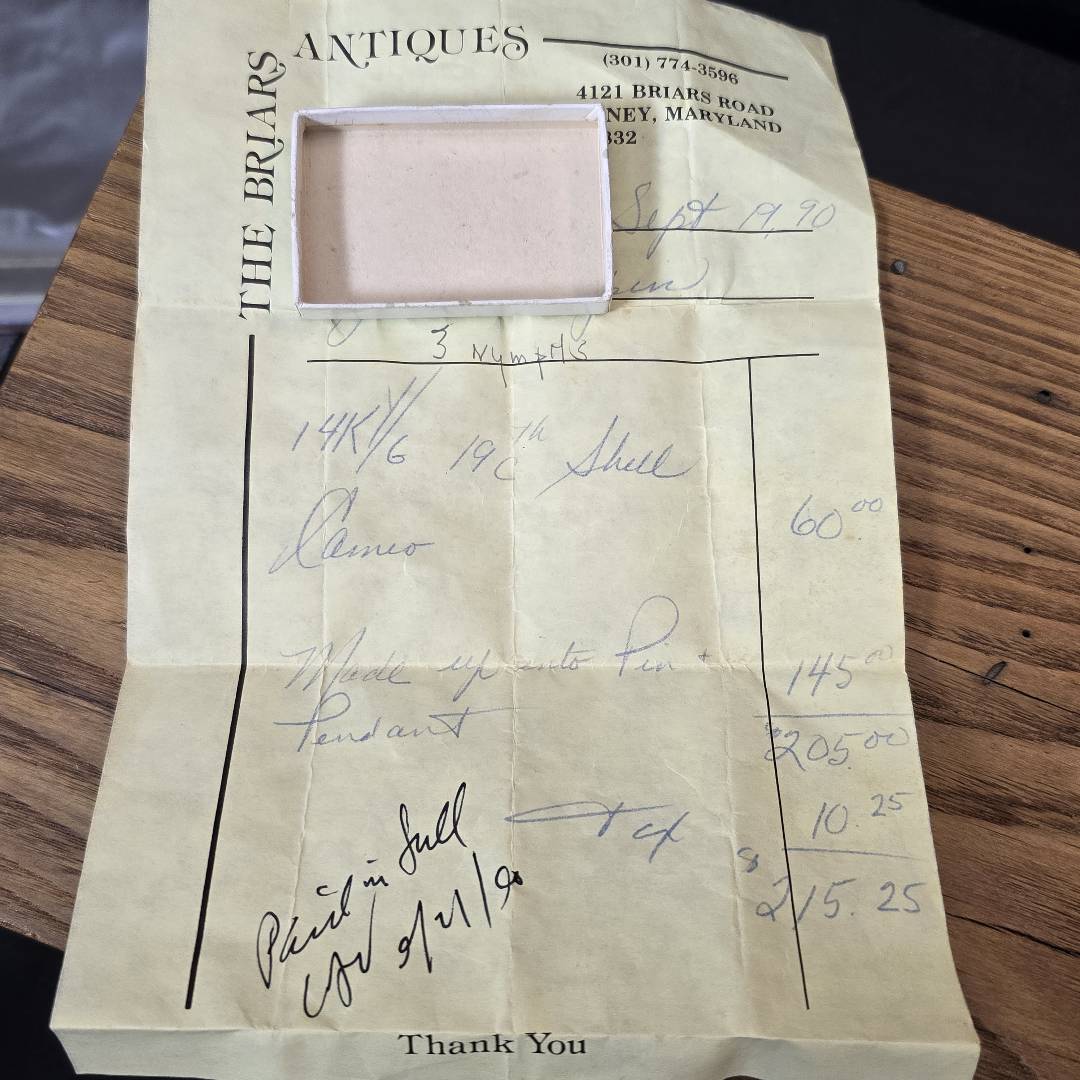 THE BRIARS
ANTIQUES
(301) 774-3596
4121 BRIARS ROAD
NEY, MARYLAND
832
Sept 19, 90
3 Nymphs
14K Y/G 19th C Shell
Cameo 60.00
Made up into Pin +
Pendant 145.00
$205.00
Tax 10.25
$215.25
Paid in full
9/21/90
Thank You